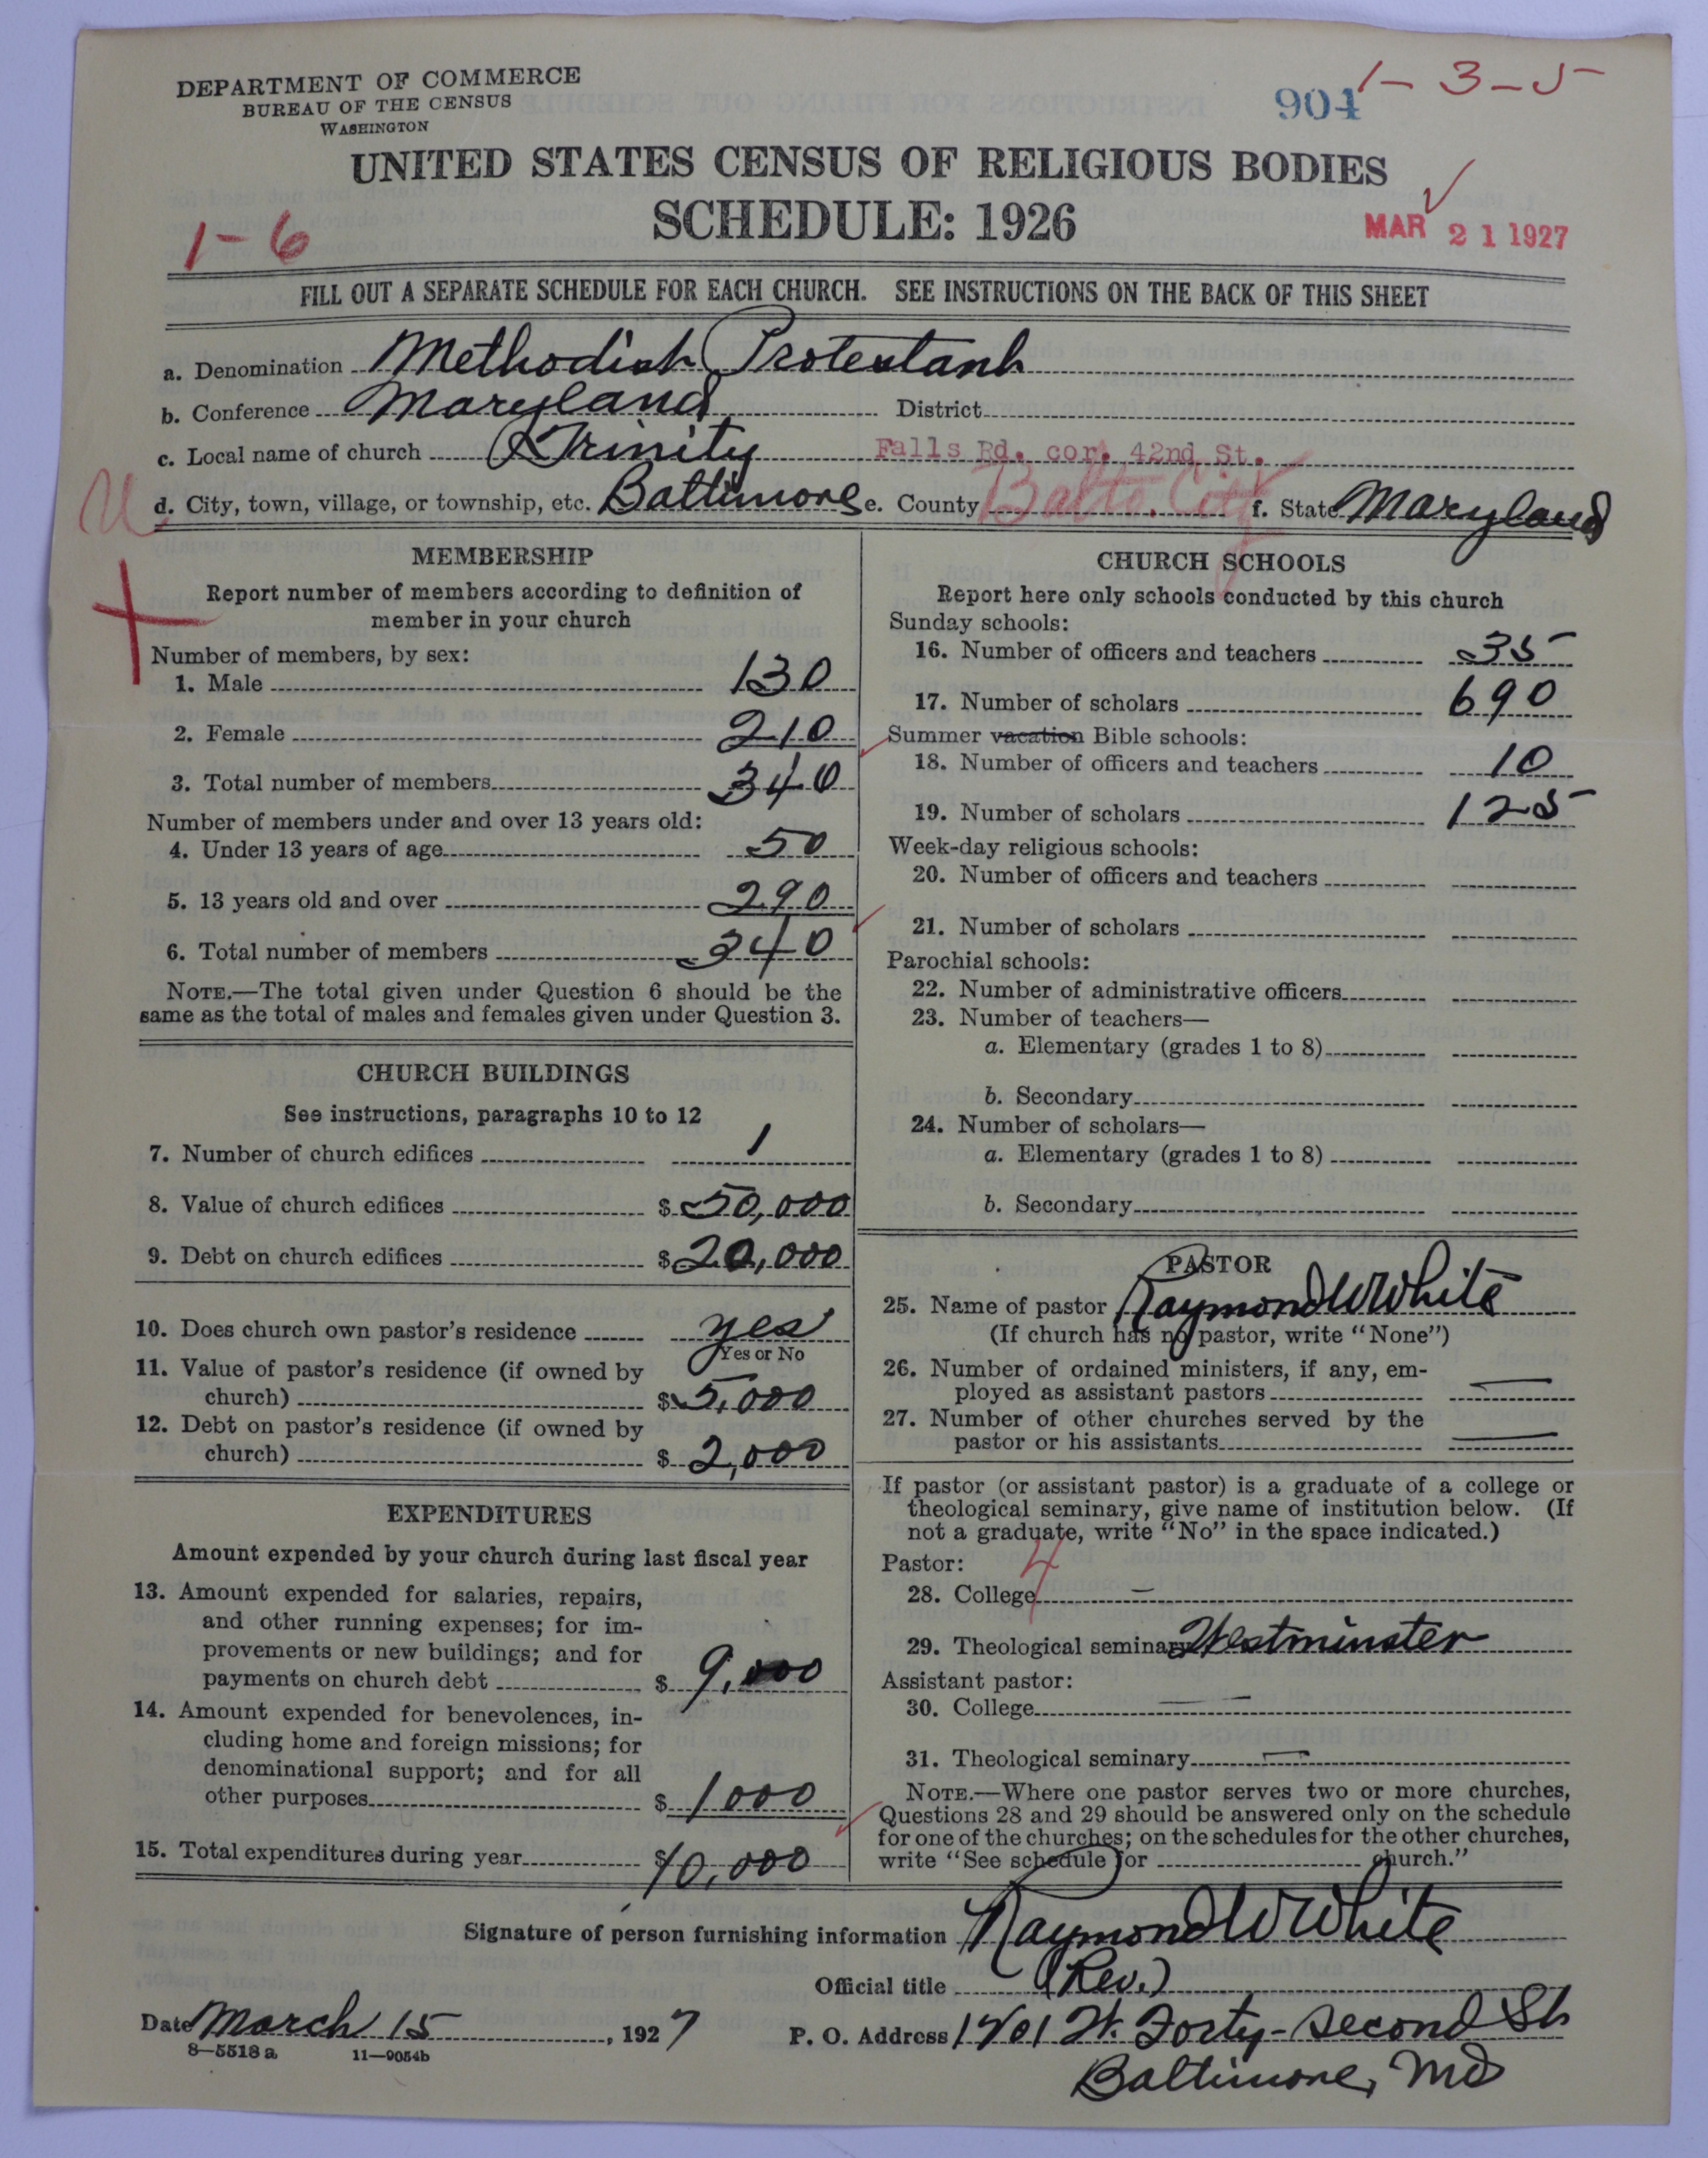 DEPARTMENT OF COMMERCE
BUREAU OF THE CENSUS
WASHINGTON
904 1-3-5
UNITED STATES CENSUS OF RELIGIOUS BODIES
SCHEDULE: 1926
1-6
MAR 21 1927
FILL OUT A SEPARATE SCHEDULE FOR EACH CHURCH. SEE INSTRUCTIONS ON THE BACK OF THIS SHEET
a. Denomination Methodist Protestant
b. Conference Maryland District
c. Local name of church Trinity Falls Rd. cor. 42nd St.
d. City, town, village, or township, etc. Baltimore e. County Balto. City f. State Maryland
MEMBERSHIP
Report number of members according to definition of
member in your church
Number of members, by sex:
1. Male 130
2. Female 210
3. Total number of members 340
Number of members under and over 13 years old:
4. Under 13 years of age 50
5. 13 years old and over 290
6. Total number of members 340
NOTE.—The total given under Question 6 should be the
same as the total of males and females given under Question 3.
CHURCH BUILDINGS
See instructions, paragraphs 10 to 12
7. Number of church edifices 1
8. Value of church edifices $ 50,000
9. Debt on church edifices $ 20,000
10. Does church own pastor's residence yes
Yes or No
11. Value of pastor's residence (if owned by
church) $ 5,000
12. Debt on pastor's residence (if owned by
church) $ 2,000
EXPENDITURES
Amount expended by your church during last fiscal year
13. Amount expended for salaries, repairs,
and other running expenses; for im-
provements or new buildings; and for
payments on church debt $ 9,000
14. Amount expended for benevolences, in-
cluding home and foreign missions; for
denominational support; and for all
other purposes $ 1000
15. Total expenditures during year $ 10,000
CHURCH SCHOOLS
Report here only schools conducted by this church
Sunday schools:
16. Number of officers and teachers 35
17. Number of scholars 690
Summer vacation Bible schools:
18. Number of officers and teachers 10
19. Number of scholars 125
Week-day religious schools:
20. Number of officers and teachers
21. Number of scholars
Parochial schools:
22. Number of administrative officers
23. Number of teachers—
a. Elementary (grades 1 to 8)
b. Secondary
24. Number of scholars—
a. Elementary (grades 1 to 8)
b. Secondary
PASTOR
25. Name of pastor Raymond W White
(If church has no pastor, write "None")
26. Number of ordained ministers, if any, em-
ployed as assistant pastors —
27. Number of other churches served by the
pastor or his assistants —
If pastor (or assistant pastor) is a graduate of a college or
theological seminary, give name of institution below. (If
not a graduate, write "No" in the space indicated.)
Pastor: 4
28. College —
29. Theological seminary Westminster
Assistant pastor:
30. College —
31. Theological seminary —
NOTE.—Where one pastor serves two or more churches,
Questions 28 and 29 should be answered only on the schedule
for one of the churches; on the schedules for the other churches,
write "See schedule for church."
Signature of person furnishing information Raymond W White
Official title (Rev.)
Date March 15, 1927 P. O. Address W. Forty-second St
Baltimore, Md
8—5518 a 11—9054b